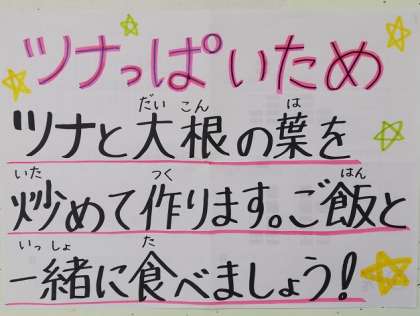 ツナっぱいため
ツナと大根の葉を
炒めて作ります。ご飯と
一緒に食べましょう!
だい こん は
いた つく はん
いっ しょ た